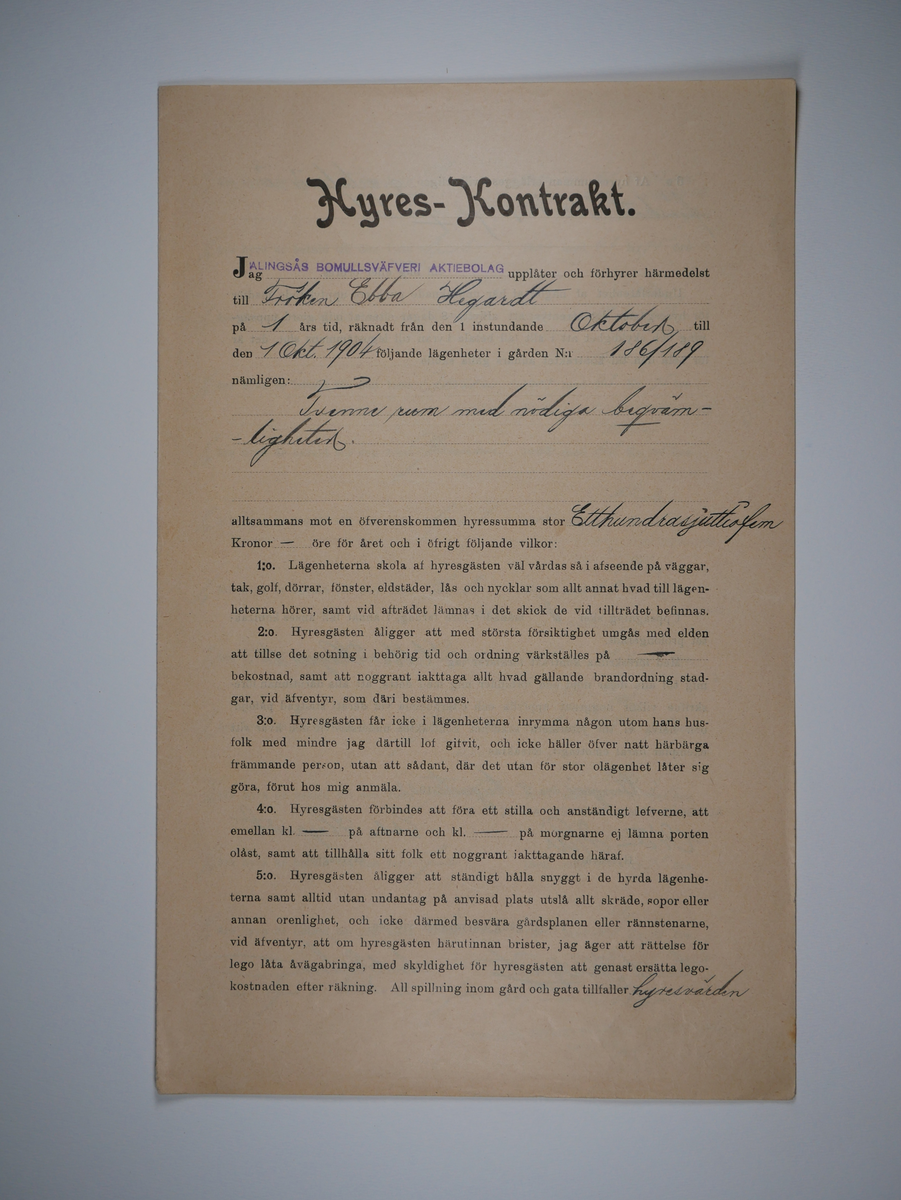 Hyres-Kontrakt.
Jag ALINGSÅS BOMULLSVÄFVERI AKTIEBOLAG upplåter och förhyrer härmedelst
till Fröken Ebba Hegardt
på 1 års tid, räknadt från den 1 instundande Oktober till
den 1 Okt. 1904 följande lägenheter i gården N:r 186/189
nämligen:
Tvenne rum med nödiga beqväm-
-ligheter.
alltsammans mot en öfverenskommen hyressumma stor Etthundrasjuttiofem
Kronor — öre för året och i öfrigt följande vilkor:
1:o. Lägenheterna skola af hyresgästen väl vårdas så i afseende på väggar,
tak, golf, dörrar, fönster, eldstäder, lås och nycklar som allt annat hvad till lägen-
heterna hörer, samt vid afträdet lämnas i det skick de vid tillträdet befinnas.
2:o. Hyresgästen åligger att med största försiktighet umgås med elden
att tillse det sotning i behörig tid och ordning värkställes på —
bekostnad, samt att noggrant iakttaga allt hvad gällande brandordning stad-
gar, vid äfventyr, som däri bestämmes.
3:o. Hyresgästen får icke i lägenheterna inrymma någon utom hans hus-
folk med mindre jag därtill lof gifvit, och icke häller öfver natt härbärga
främmande person, utan att sådant, där det utan för stor olägenhet låter sig
göra, förut hos mig anmäla.
4:o. Hyresgästen förbindes att föra ett stilla och anständigt lefverne, att
emellan kl. — på aftnarne och kl. — på morgnarne ej lämna porten
olåst, samt att tillhålla sitt folk ett noggrant iakttagande häraf.
5:o. Hyresgästen åligger att ständigt hålla snyggt i de hyrda lägenhe-
terna samt alltid utan undantag på anvisad plats utslå allt skräde, sopor eller
annan orenlighet, och icke därmed besvära gårdsplanen eller rännstenarne,
vid äfventyr, att om hyresgästen härutinnan brister, jag äger att rättelse för
lego låta åvägabringa, med skyldighet för hyresgästen att genast ersätta lego-
kostnaden efter räkning. All spillning inom gård och gata tillfaller hyresvärden